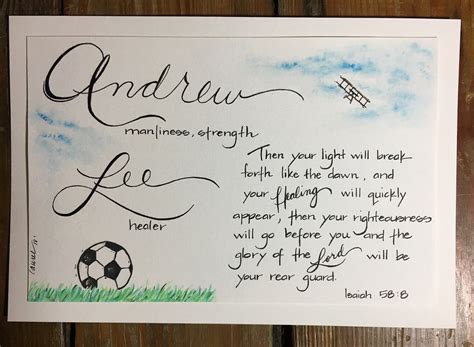 Andrew
manliness, strength
Lee
healer
Then your light will break
forth like the dawn, and
your Healing will quickly
appear; then your righteousness
will go before you and the
glory of the Lord will be
your rear guard.
Isaiah 58:8